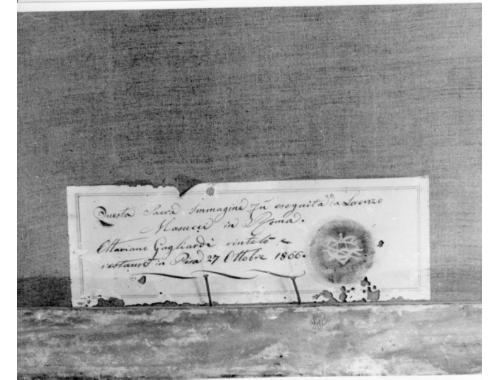 Questa Sacra Immagine fù eseguita da Lorenzo
Masucci in Roma.
Ottaviano Gagliardi rintelò e
restaurò a Pisa 27 Ottobre 1866.